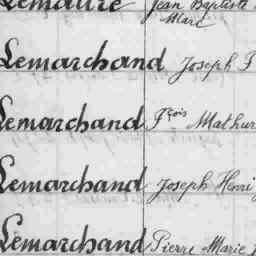 Lemaure Jean Baptiste
Marc
Lemarchand Joseph F
Lemarchand Fçois Mathur
Lemarchand Joseph Henri
Lemarchand Pierre Marie